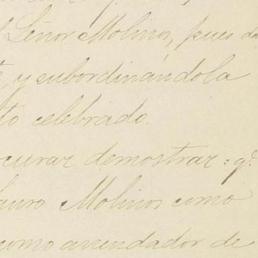 Señor Molinos, pues
y subordinándola
to celebrado.
ocurar demostrar: q.e
auro Molinos como
como arrendador de